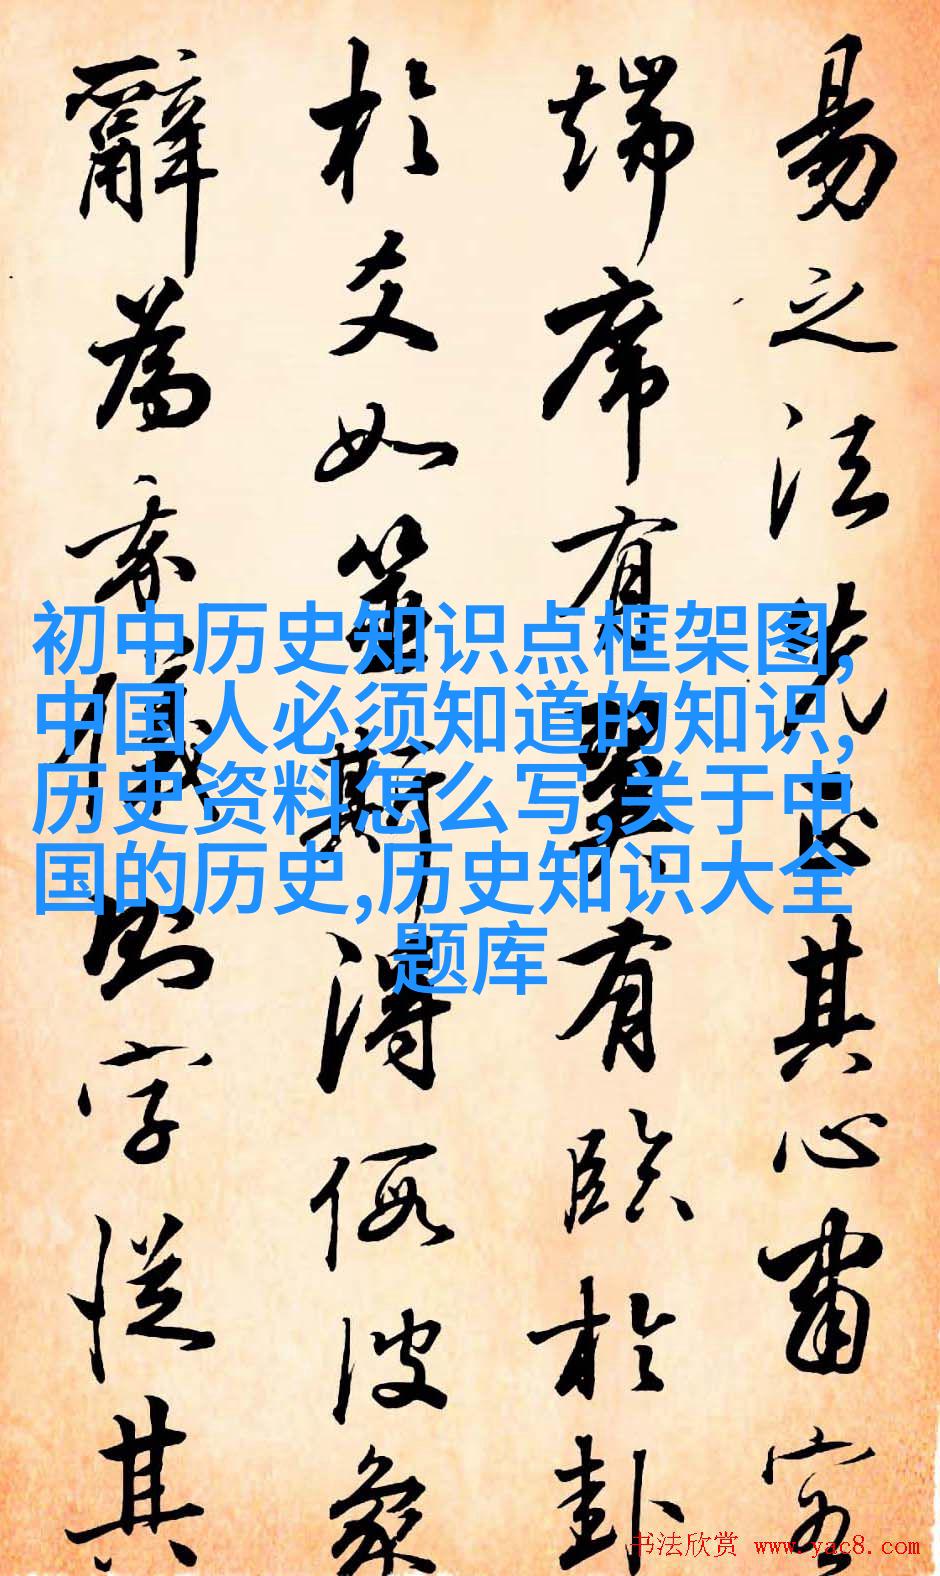 易之法先正其心肃容
端席有翼有临於卦
於爻如筮斯得假彼象
辞为之仪则字从其
初中历史知识点框架图,
中国人必须知道的知识,
历史资料怎么写,关于中
国的历史,历史知识大全
题库
书法欣赏 www.yac8.com